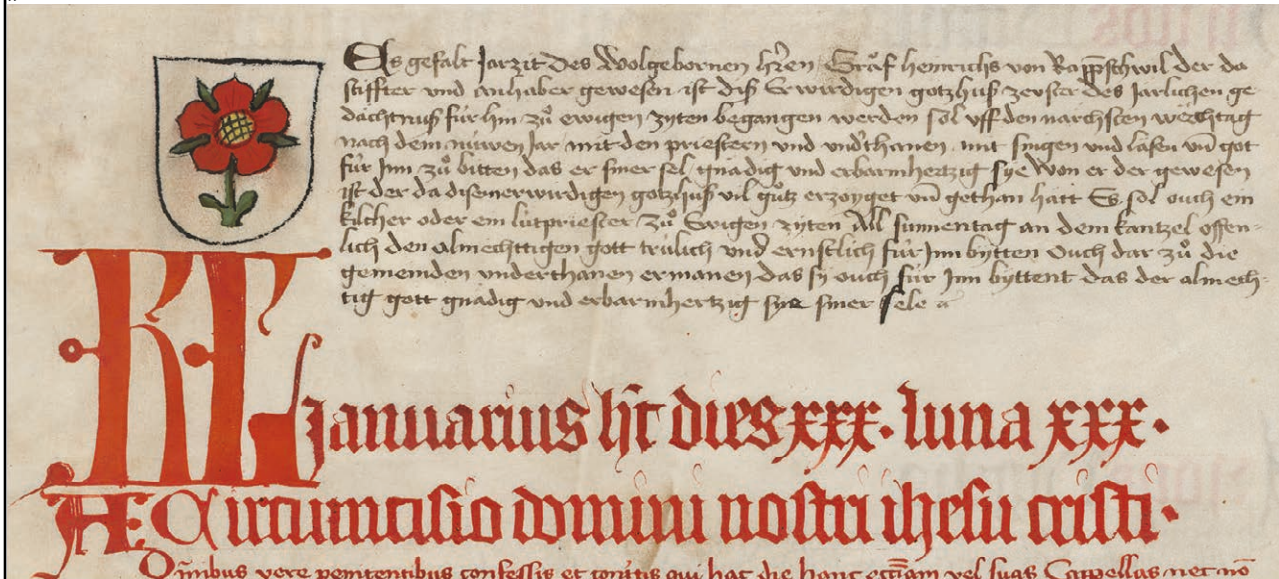 Es gefalt Jarzit des Wolgebornen hr̃en Graͦf heinrichs von Rapp̄schwil der da
stiffter und anhaber gewesen ist diß Erwirdigen gotzhuß zerster des Jarlichen ge
dächtnuß für hin zuͦ ewigen zyten begangen werden sol uff den nächsten wërchtag
nach dem nüwen Jar mit den priestern und und̓thanen mit singen und läsen vn̄ got
für Jnn zuͦ bitten das er siner sel gnädig und erbarmhertzig sye Won er der gewesen
ist der da disem erwirdigen gotzhuß vil guͦtz erzoyget vn̄ gethan hatt Es sol ouch ein
kilcher oder ein lütpriester zuͦ Ewigen zyten All sunnentag an dem kantzel offen-
lich den almechttigen gott trülich und ernstlich für Jnn bytten Ouch dar zuͦ die
gemeinden underthanen ermanen das sy ouch für Jnn byttent das der almech-
tig gott gnädig und erbarmhertzig sye siner sele
KL
Januarius hīt dies xxx. luna xxx.
A Circumcisio domini nostri ihesu cristi.
Om̄ibus vere penitentibus confessis et contritis qui hac die hanc ecc̄iam vel suas Cappellas nec nō